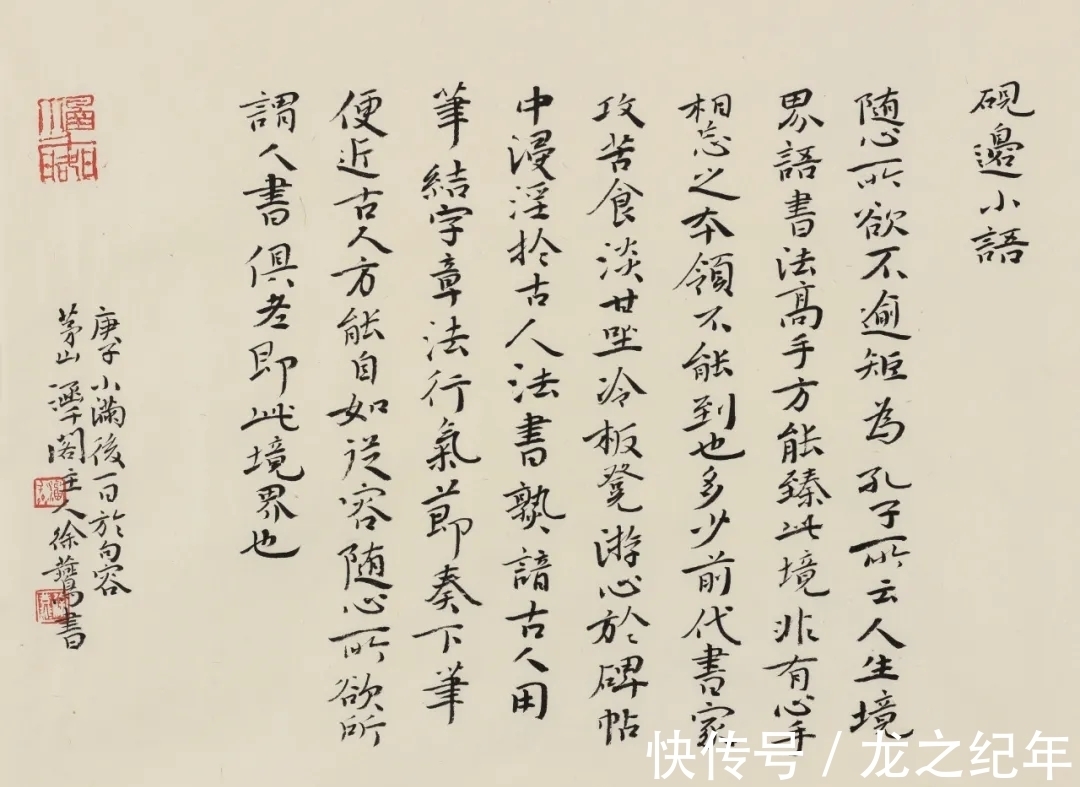 硯邊小語
随心所欲不逾矩為孔子所云人生境
界語書法高手方能臻此境非有心手
相忘之本領不能到也多少前代書家
攻苦食淡甘坐冷板凳游心於碑帖
中浸淫於古人法書熟諳古人用
筆結字章法行氣節奏下筆
便近古人方能自如從容随心所欲所
謂人書俱老即此境界也
庚子小滿後一日於句容
茅山涵千閣主人徐書
快传号/龙之纪年